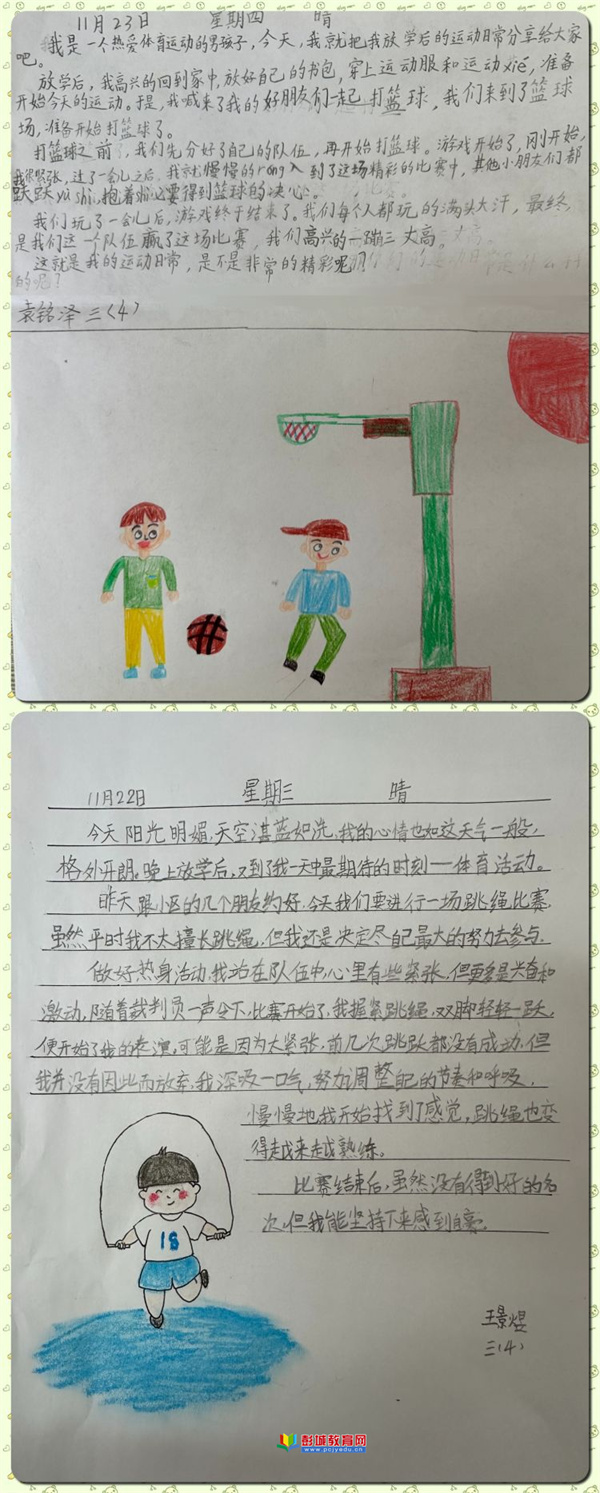 11月23日 星期四 晴
我是一个热爱体育运动的男孩子，今天，我就把我放学后的运动日常分享给大家
吧。
放学后，我高兴的回到家中，放好自己的书包，穿上运动服和运动xié，准备
开始今天的运动。于是，我喊来了我的好朋友们一起打篮球，我们来到了篮球
场，准备开始打篮球了。
打篮球之前，我们先分好了自己的队伍，再开始打篮球。游戏开始了，刚开始，
我很紧张，过了一会儿之后，我就慢慢的róng入到了这场精彩的比赛中，其他小朋友们都
跃跃yù shì，抱着必要得到篮球的决心。
我们玩了一会儿后，游戏终于结束了。我们每个人都玩的满头大汗，最终，
是我们这一个队伍赢了这场比赛，我们高兴的一蹦三丈高。
这就是我的运动日常，是不是非常的精彩呢？
的呢？
袁铭泽 三（4）
11月22日 星期三 晴
今天阳光明媚，天空湛蓝如洗，我的心情也如这天气一般，
格外开朗。晚上放学后，又到了我一天中最期待的时刻——体育活动。
昨天跟小区的几个朋友约好，今天我们要进行一场跳绳比赛，
虽然平时我不太擅长跳绳，但我还是决定尽自己最大的努力去参与。
做好热身活动，我站在队伍中，心里有些紧张，但更多是兴奋和
激动，随着裁判员一声令下，比赛开始了，我握紧跳绳，双脚轻轻一跃，
便开始了我的表演，可能是因为太紧张，前几次跳跃都没有成功，但
我并没有因此而放弃，我深吸一口气，努力调整自己的节奏和呼吸，
慢慢地，我开始找到了感觉，跳绳也变
得越来越熟练。
比赛结束后，虽然没有得到好的名
次，但我能坚持下来感到自豪。
18
王景煜
三（4）
彭城教育网
www.pcjyedu.cn